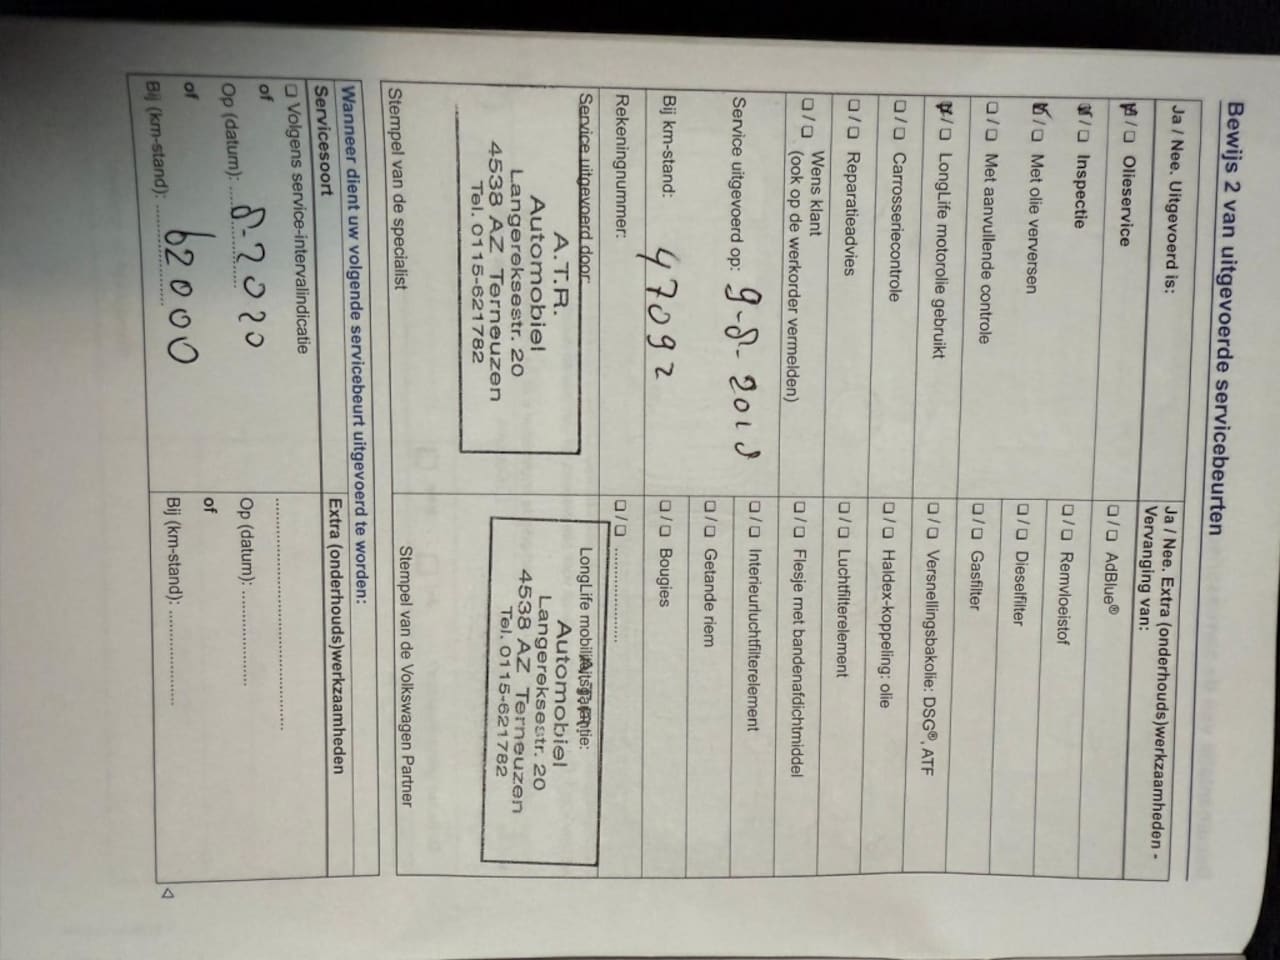 Bewijs 2 van uitgevoerde servicebeurten
Ja / Nee. Uitgevoerd is:
☑ / ☐ Olieservice
☑ / ☐ Inspectie
☑ / ☐ Met olie verversen
☐ / ☐ Met aanvullende controle
☑ / ☐ LongLife motorolie gebruikt
☐ / ☐ Carrosseriecontrole
☐ / ☐ Reparatieadvies
☐ / ☐ Wens klant
(ook op de werkorder vermelden)
Service uitgevoerd op: 9-8-2018
Bij km-stand: 47092
Rekeningnummer:
Service uitgevoerd door:
A.T.R.
Automobiel
Langereksestr. 20
4538 AZ Terneuzen
Tel. 0115-621782
Stempel van de specialist
Ja / Nee. Extra (onderhouds)werkzaamheden -
Vervanging van:
☐ / ☐ AdBlue®
☐ / ☐ Remvloeistof
☐ / ☐ Dieselfilter
☐ / ☐ Gasfilter
☐ / ☐ Versnellingsbakolie: DSG®, ATF
☐ / ☐ Haldex-koppeling: olie
☐ / ☐ Luchtfilterelement
☐ / ☐ Flesje met bandenafdichtmiddel
☐ / ☐ Interieurluchtfilterelement
☐ / ☐ Getande riem
☐ / ☐ Bougies
☐ / ☐ ....................
LongLife mobiliteitsgarantie:
A.T.R.
Automobiel
Langereksestr. 20
4538 AZ Terneuzen
Tel. 0115-621782
Stempel van de Volkswagen Partner
Wanneer dient uw volgende servicebeurt uitgevoerd te worden:
Servicesoort
☐ Volgens service-intervalindicatie
of
Op (datum): 8-2020
of
Bij (km-stand): 62000
Extra (onderhouds)werkzaamheden
..................................................
Op (datum): ....................
of
Bij (km-stand): ....................